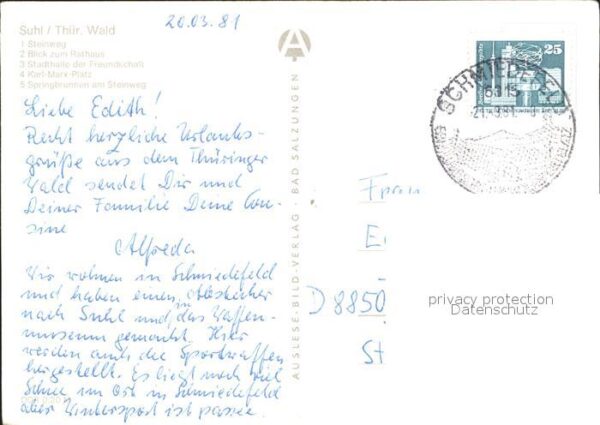 Suhl / Thür. Wald
1 Steinweg
2 Blick zum Rathaus
3 Stadthalle der Freundschaft
4 Karl-Marx-Platz
5 Springbrunnen am Steinweg
20.03.81
Liebe Edith!
Recht herzliche Urlaubs-
grüße aus dem Thüringer
Wald sendet Dir und
Deiner Familie Deine Cou-
sine
Alfreda
Wir wohnen in Schmiedefeld
und haben einen Abstecher
nach Suhl und in das Waffen-
museum gemacht. Hier
werden auch die Sportwaffen
hergestellt. Es liegt noch viel
Schnee im Ort in Schmiedefeld
aber Wintersport ist passee.
AUSLESE-BILD-VERLAG · BAD SALZUNGEN
A
25
SCHMIEDEFELD
Frau
E
D 8850
St
privacy protection
Datenschutz